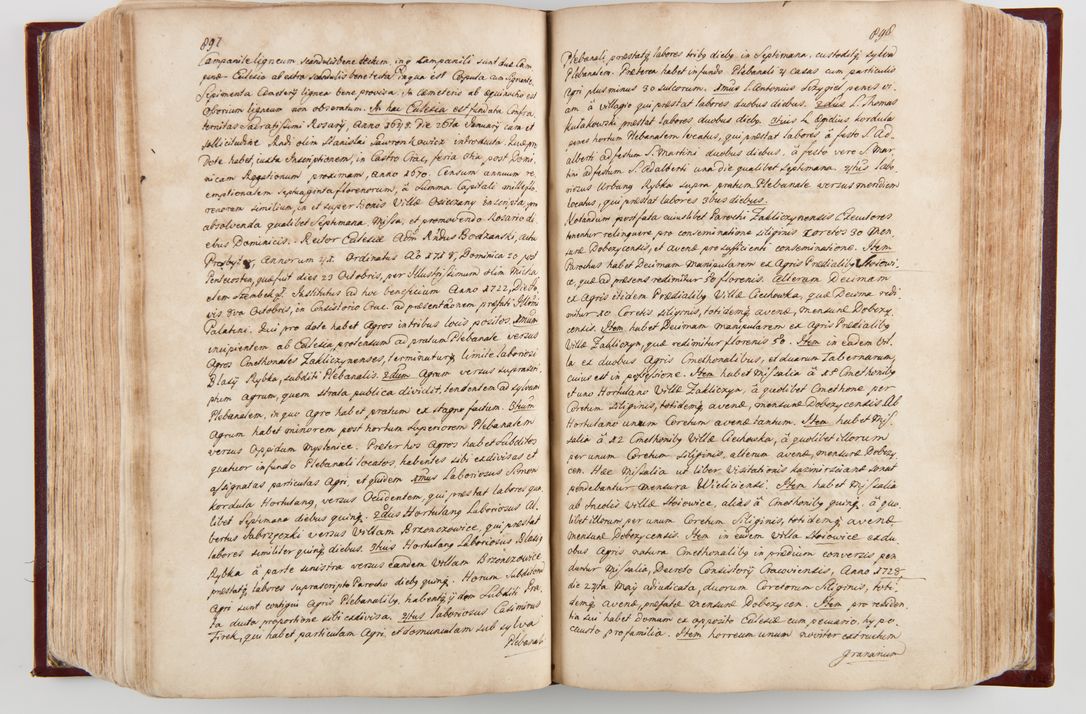 897
Campanile ligneum scandulis bene tectum, in quo Campanili sunt duæ Cam
panæ. Ecclesia ab extra scandulis bene tecta
Sepimenta Cæmeterij lignea bene provisa. In Cæmeterio ab
Ossorium ligneum non obseratum. In hac Ecclesia est fundata Confra
ternitas Sacratissimi Rosarij, Anno 1648. die 26ta January cura et
sollicitudine Rndi olim Stanislai Lawronkowicz introducta. Quæ pro
Dote habet, iuxta Inscriptionem, in Castro Crac. feria 6ta post Domi
nicam Rogationum proximam, anno 1670. Censum annuum re
emptionalem Septuaginta florenorum, à Summa Capitali mille flo
renorum similium, in et super bonis Villæ Osieczany inscripta, pro
absolvenda qualibet Septimana Missa, et promovendo Rosario di
ebus Dominicis. Rector Ecclesiæ Adm Rndus Bodzanski, actu
Presbyter, annorum 42. Ordinatus Ao 1718, Dominica 20 post
Pentecosten, quæ fuit dies 23 Octobris, per Illustrissimum olim Micha
elem Szembek. Institutus ad hoc beneficium Anno 1722, Die
vis. 3va Octobris, in Consistorio Crac. ad præsentaonem præfati Illmi
Palatini. Qui pro dote habet agros in tribus locis positos. 1mum
incipientem ab Ecclesia, protensum ad pratum Plebanale versus
Agros Cmethonales Zakliczynenses, terminatur limite laboriosi
Blasij Rybka, subditi Plebanalis. 2dum Agrum versus suprascri
ptum agrum, quem strata publica dividit, tendentem ad sylvam
Plebanalem, in quo agro habet pratum ex stagno factum. 3tium
Agrum habet minorem post hortum superiorem Plebanalem
versus Oppidum Myslenice. Præter hos agros habet Subditos
quatuor in fundo Plebanali locatos, habentes sibi exdivisas et
assignatas particulas Agri, et quidem 1mus Laboriosus Simon
Kordula Hortulanus, versus Occidentem, qui præstat labores qua
libet Septimana diebus quinque. 2dus Hortulanus Laboriosus Al
bertus Babrzycki versus Villam Brzonczowice, qui præstat
labores similiter quinque diebus. 3tius Hortulanus Laboriosus Blasius
Rybka à parte sinistra versus eandem Villam Brzonczowice
præstatque labores suprascripto Parocho diebus quinque. Horum Subditorum
Agri sunt contigui agris Plebanalibus, habentque ijdem Subditi Pra
ta duto proportione sibi exdivisa. 4tus laboriosus Casimirus
Firek, qui habet particulam Agri, et domunculam sub sylva
Plebanali
898
Plebanali, præstatque labores tribus diebus in Septimana, custoditque sylvam
Plebanalem. Præterea habet in fundo Plebanali 4 casas cum particulis
Agri plus minus 30 sulcorum. 1mus L. Antonius Szczygiel penes vi
am à villagio qui præstat labores duobus diebus. 2dus L. Thomas
Kułakowski præstat labores duobus diebus. 3tius L. Egidius Kordula
penes hortum Plebanalem locatus, qui præstat labores à festo S. Ad
alberti ad festum S. Martini duobus diebus. à festo vero S. Mar
tini ad festum S. Adalberti una die qualibet Septimana. 4tus labo
riosus Urbanus Rybka supra pratum Plebanale versus meridiem
locatus, qui præstat labores 2bus diebus.
Notandum post fata cuiuslibet Parochi Zakliczynensis Executores
tenentur relinquere, pro conseminatione siliginis coretos 30 Men
suræ Dobczycensis, et avenæ pro sufficienti conseminatione. Item
Parochus habet Decimam manipularem ex Agris Prædialibus Stoiowi
ce, quæ ad præsens redimitur 50 florenis. Alteram Decimam
ex Agris itidem Prædialibus Villæ Ciechowka, quæ Decima redi
mitur 10 Coretis siliginis, totidemque avenæ, mensuræ Dobczy
censis. Item habet Decimam manipularem ex agris Prædialibus
Villæ Zakliczyn, quæ redimitur florenis 50. Item in eadem Vil
la ex duobus Agris Cmethonalibus, et duarum Tabernarum,
cuius est in possessione. Item habet Missalia à 11 Cmethonibus
et uno Hortulano Villæ Zakliczyn, à quolibet Cmethone per
Coretum siliginis, totidemque avenæ, mensuræ Dobczycensis. Ab
Hortulano unum Coretum avenæ tantum. Item habet Mis
salia à 12 Cmethonibus Villæ Ciechowka, à quolibet illorum
per unum Coretum siliginis, alterum avenæ, mensuræ Dobczy
cen. Hæc Missalia ut liber Visitationis Kazimirscianæ sonat
pendebantur mensura Wieliciensi. Item habet Missalia
ab Incolis Villæ Stoiowice, alias à Cmethonibus quinque. à quo
libet illorum per unum Coretum Siliginis, totidemque avenæ
mensuræ Dobczycensis. Item in eadem Villa Stoiowice ex du
obus Agris natura Cmethonalibus in prædium conversis pen
duntur Missalia, Decreto Consistorij Cracoviensis, Anno 1728
die 27ta Maij adiudicata, duorum Coretorum Siliginis, toti
demque avenæ, præfatæ mensuræ Dobczycen. Item pro residen
tia sua habet Domum ex opposito Ecclesiæ cum pecuario, hypo
causto pro familia. Item horreum unum noviter extructum
Granarium